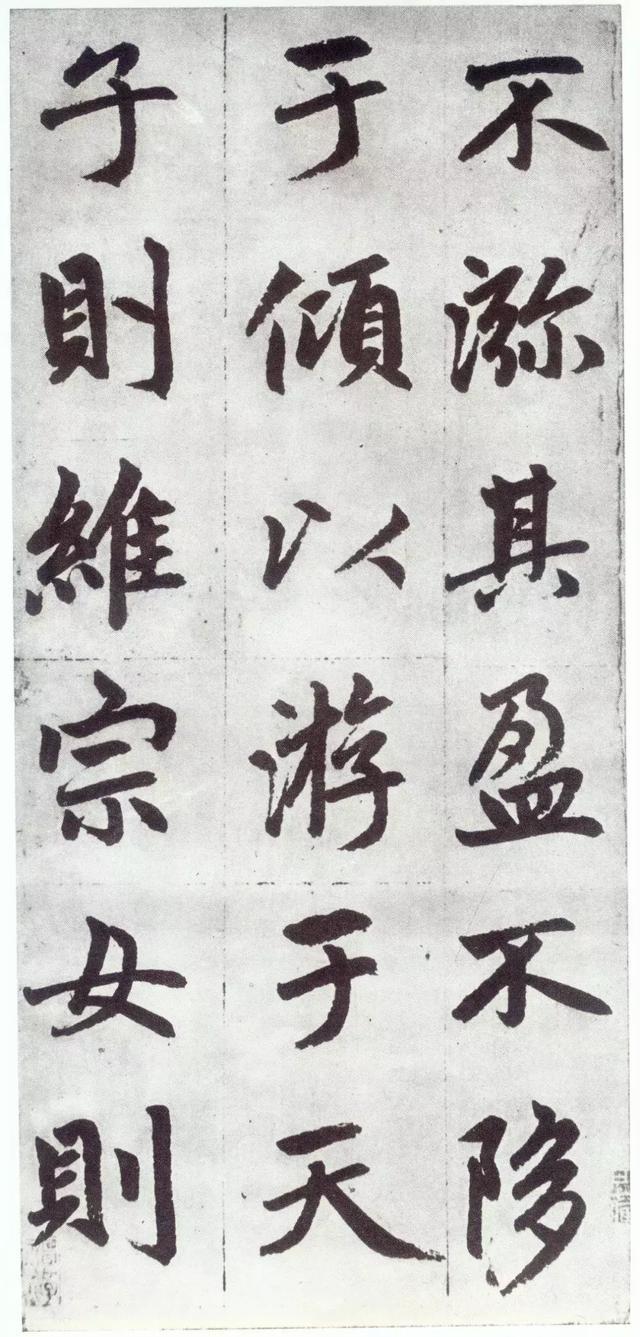 不㳽其盈不陊
于傾以游于天
子則維宗女則